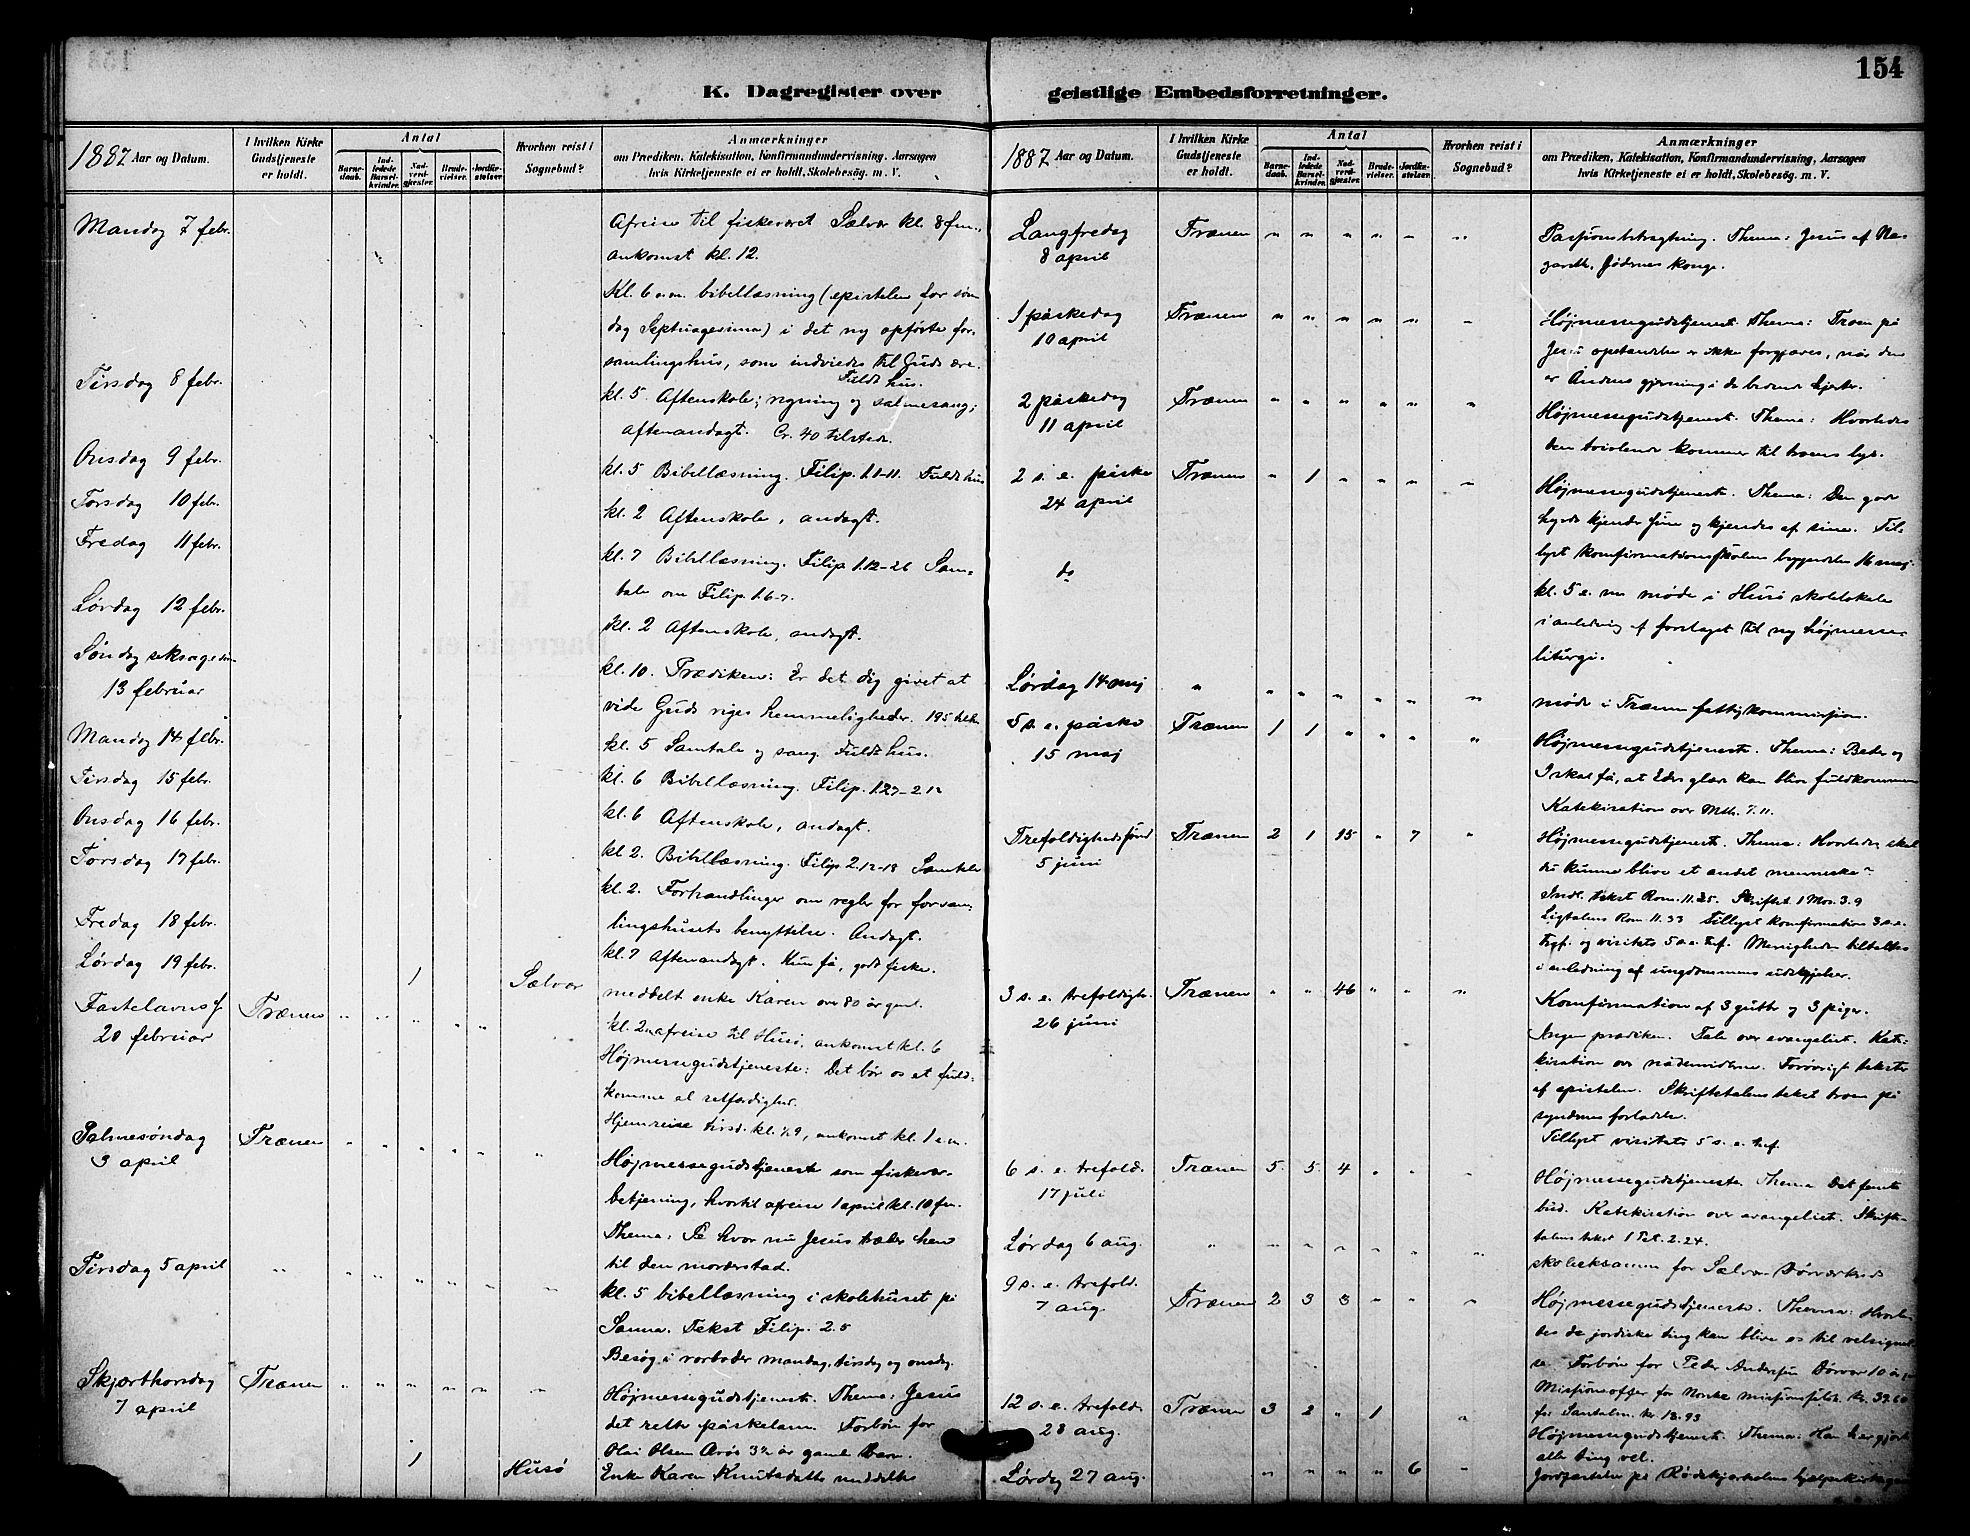 154
K. Dagregister over geistlige Embedsforretninger.
1887 Aar og Datum.
I hvilken Kirke Gudstjeneste er holdt.
Antal
Barnedaab.
Indledede Barselkvinder.
Nadverdgjæster.
Brudevielser.
Jordfæstelser.
Hvorhen reist i Sognebud?
Anmærkninger
om Prædiken, Katekisation, Konfirmandundervisning, Aarsagen
hvis Kirketjeneste ei er holdt, Skolebesøg. m. V.
Mandag 7 febr.
Afreise til fiskeværet Selvær kl. 8 fm.,
ankomst kl. 12.
Kl. 6 e.m. bibellæsning (epistelen for søn-
dag Septuagesima) i det ny opførte for-
samlingshus, som indviedes til Guds ære.
Fuldt hus.
Tirsdag 8 febr.
kl. 5 Aftenskole; regning og salmesang;
aftenandagt. Cr. 40 tilstede.
Onsdag 9 febr.
kl. 5 Bibellæsning. Filip. 1.1-11. Fuldt hus
Torsdag 10 febr.
kl. 2 Aftenskole, andagt.
Fredag 11 febr.
kl. 7 Bibellæsning. Filip 1.12-26 Sam-
tale om Filip. 1.6-7.
Lørdag 12 febr.
kl. 2 Aftenskole, andagt.
Søndag seksagesim
13 februar
kl. 10. Prædiken: Er det dig givet at
vide Guds riges hemmeligheder. 195 tilst.
Mandag 14 febr.
kl. 5 Samtale og sang. Fuldt hus.
Tirsdag 15 febr.
kl. 6 Bibellæsning. Filip. 1.27-2.12
Onsdag 16 febr.
kl. 6 Aftenskole, andagt.
Torsdag 17 febr.
kl 2. Bibellæsning. Filip 2.12-18 Samtale
kl. 2. Forhandlinger om regler for forsam-
lingshusets benyttelse. Andagt.
Fredag 18 febr.
kl. 7 Aftenandagt. Kun få, godt fiske.
Lørdag 19 febr. 1 Selvær
meddelt enke Karen over 80 år gml.
kl. 2 afreise til Husø, ankomst kl. 6
Fastelavns s. Trænen " " " " "
20 februar
Højmessegudstjeneste: Det bør os at fuld-
komme al retfærdighed.
Hjemreise tirsd. kl. ½9, ankomst kl. 1 e.m.
Palmesøndag Trænen " " " " " "
3 april
Højmessegudstjeneste som fiskevær-
betjening, hvortil afreise 1 april kl. 10 fm.
Thema: Se hvor nu Jesus træder hen
til den morderstad.
Tirsdag 5 april " " " " " " "
kl. 5 bibellæsning i skolehuset på
Sanna. Tekst Filip. 2.5
Besøg i rorboder mandag, tirsdag og onsdag.
Skjærthorsdag Trænen " " " " " "
7 april
Højmessegudstjeneste. Thema: Jesus
det rette påskelam. Forbøn for
Olai Olsen 3½ år gamle Barn.
1 Husø
Enke Karen Knutsdatter meddeltes
1887 Aar og Datum.
I hvilken Kirke Gudstjeneste er holdt.
Antal
Barnedaab.
Indledede Barselkvinder.
Nadverdgjæster.
Brudevielser.
Jordfæstelser.
Hvorhen reist i Sognebud?
Anmærkninger
om Prædiken, Katekisation, Konfirmandundervisning, Aarsagen
hvis Kirketjeneste ei er holdt, Skolebesøg. m. V.
Langfredag Trænen " " " " " "
8 april
Passjonsbetragtning. Thema: Jesus af Na-
zareth, Jødernes konge.
1 påskedag Trænen " " " " " "
10 april
Højmessegudstjeneste. Thema: Troen på
Jesu opstandelse er ikke forgjæves, når den
er Åndens gjerning i de bedende hjerter.
2 påskedag Trænen " " " " " "
11 april
Højmessegudstjeneste. Thema: Hvorledes
den tvivlende kommer til troens lys.
2 s. e. påske Trænen " 1 " " " "
24 april
Højmessegudstjeneste. Thema: Den gode
hyrde kjender sine og kjendes af sine. Til-
lyst konfirmationsskolens begyndelse 16 maj.
do
kl. 5 e. m. møde i Husø skolelokale
i anledning af forslaget til ny højmesse-
liturgi.
Lørdag 14 maj " " " " " " "
møde i Trænen fattigkommission.
5 s. e. påske Trænen 1 1 " " " "
15 maj
Højmessegudstjeneste. Thema: Beder og
I skal få, at Eders glæde kan blive fuldkommen
Katekisation over Mth. 7.11.
Trefoldighedssønd Trænen 2 1 15 " 7 "
5 juni
Højmessegudstjeneste. Thema: Hvorledes skal
du kunne blive et andet menneske?
Indl. tekst Rom. 11.25. Skriftet. 1 Mos. 3.9
Ligtalens Rom. 11.33 Tillyst konfirmation 3 s.e.
Tref. og visitats 5 s. e. Tref. Menigheden tiltaltes
i anledning af ungdommens udskejelser.
3 s. e. trefoldigh. Trænen " " 46 " " "
26 juni
Konfirmation af 3 gutter og 3 piger.
Ingen prædiken. Tale over evangeliet. Kate-
kisation over nådemidlerne. Forøvrigt tekster
af epistelen. Skriftetalens tekst troen på
syndernes forladelse.
Tillyst visitats 5 s. e. tref.
6 s. e. trefold. Trænen 5 5 4 " " "
17 juli
Højmessegudstjeneste. Thema Det femte
bud. Katekisation over evangeliet. Skrifte-
talens tekst 1 Pet. 2.24.
Lørdag 6 aug. " " " " " " "
skoleeksamen for Selvær
9 s. e. trefold. Trænen 2 3 3 " " "
7 aug.
Højmessegudstjeneste. Thema: Hvorle-
des de jordiske ting kan blive os til velsignel-
se. Forbøn for Peder Andersen Dørvær 10 år
Missionsoffer for Norske missjonsselsk. kr. 39.60
for Santalm. kr. 18.93
12 s. e. trefold. Trænen 3 2 " 1 "
28 aug.
Højmessegudstjeneste. Thema: Han har gjort
alle ting vel.
Lørdag 27 aug. " " " " 6 "
Jordfæstelse på